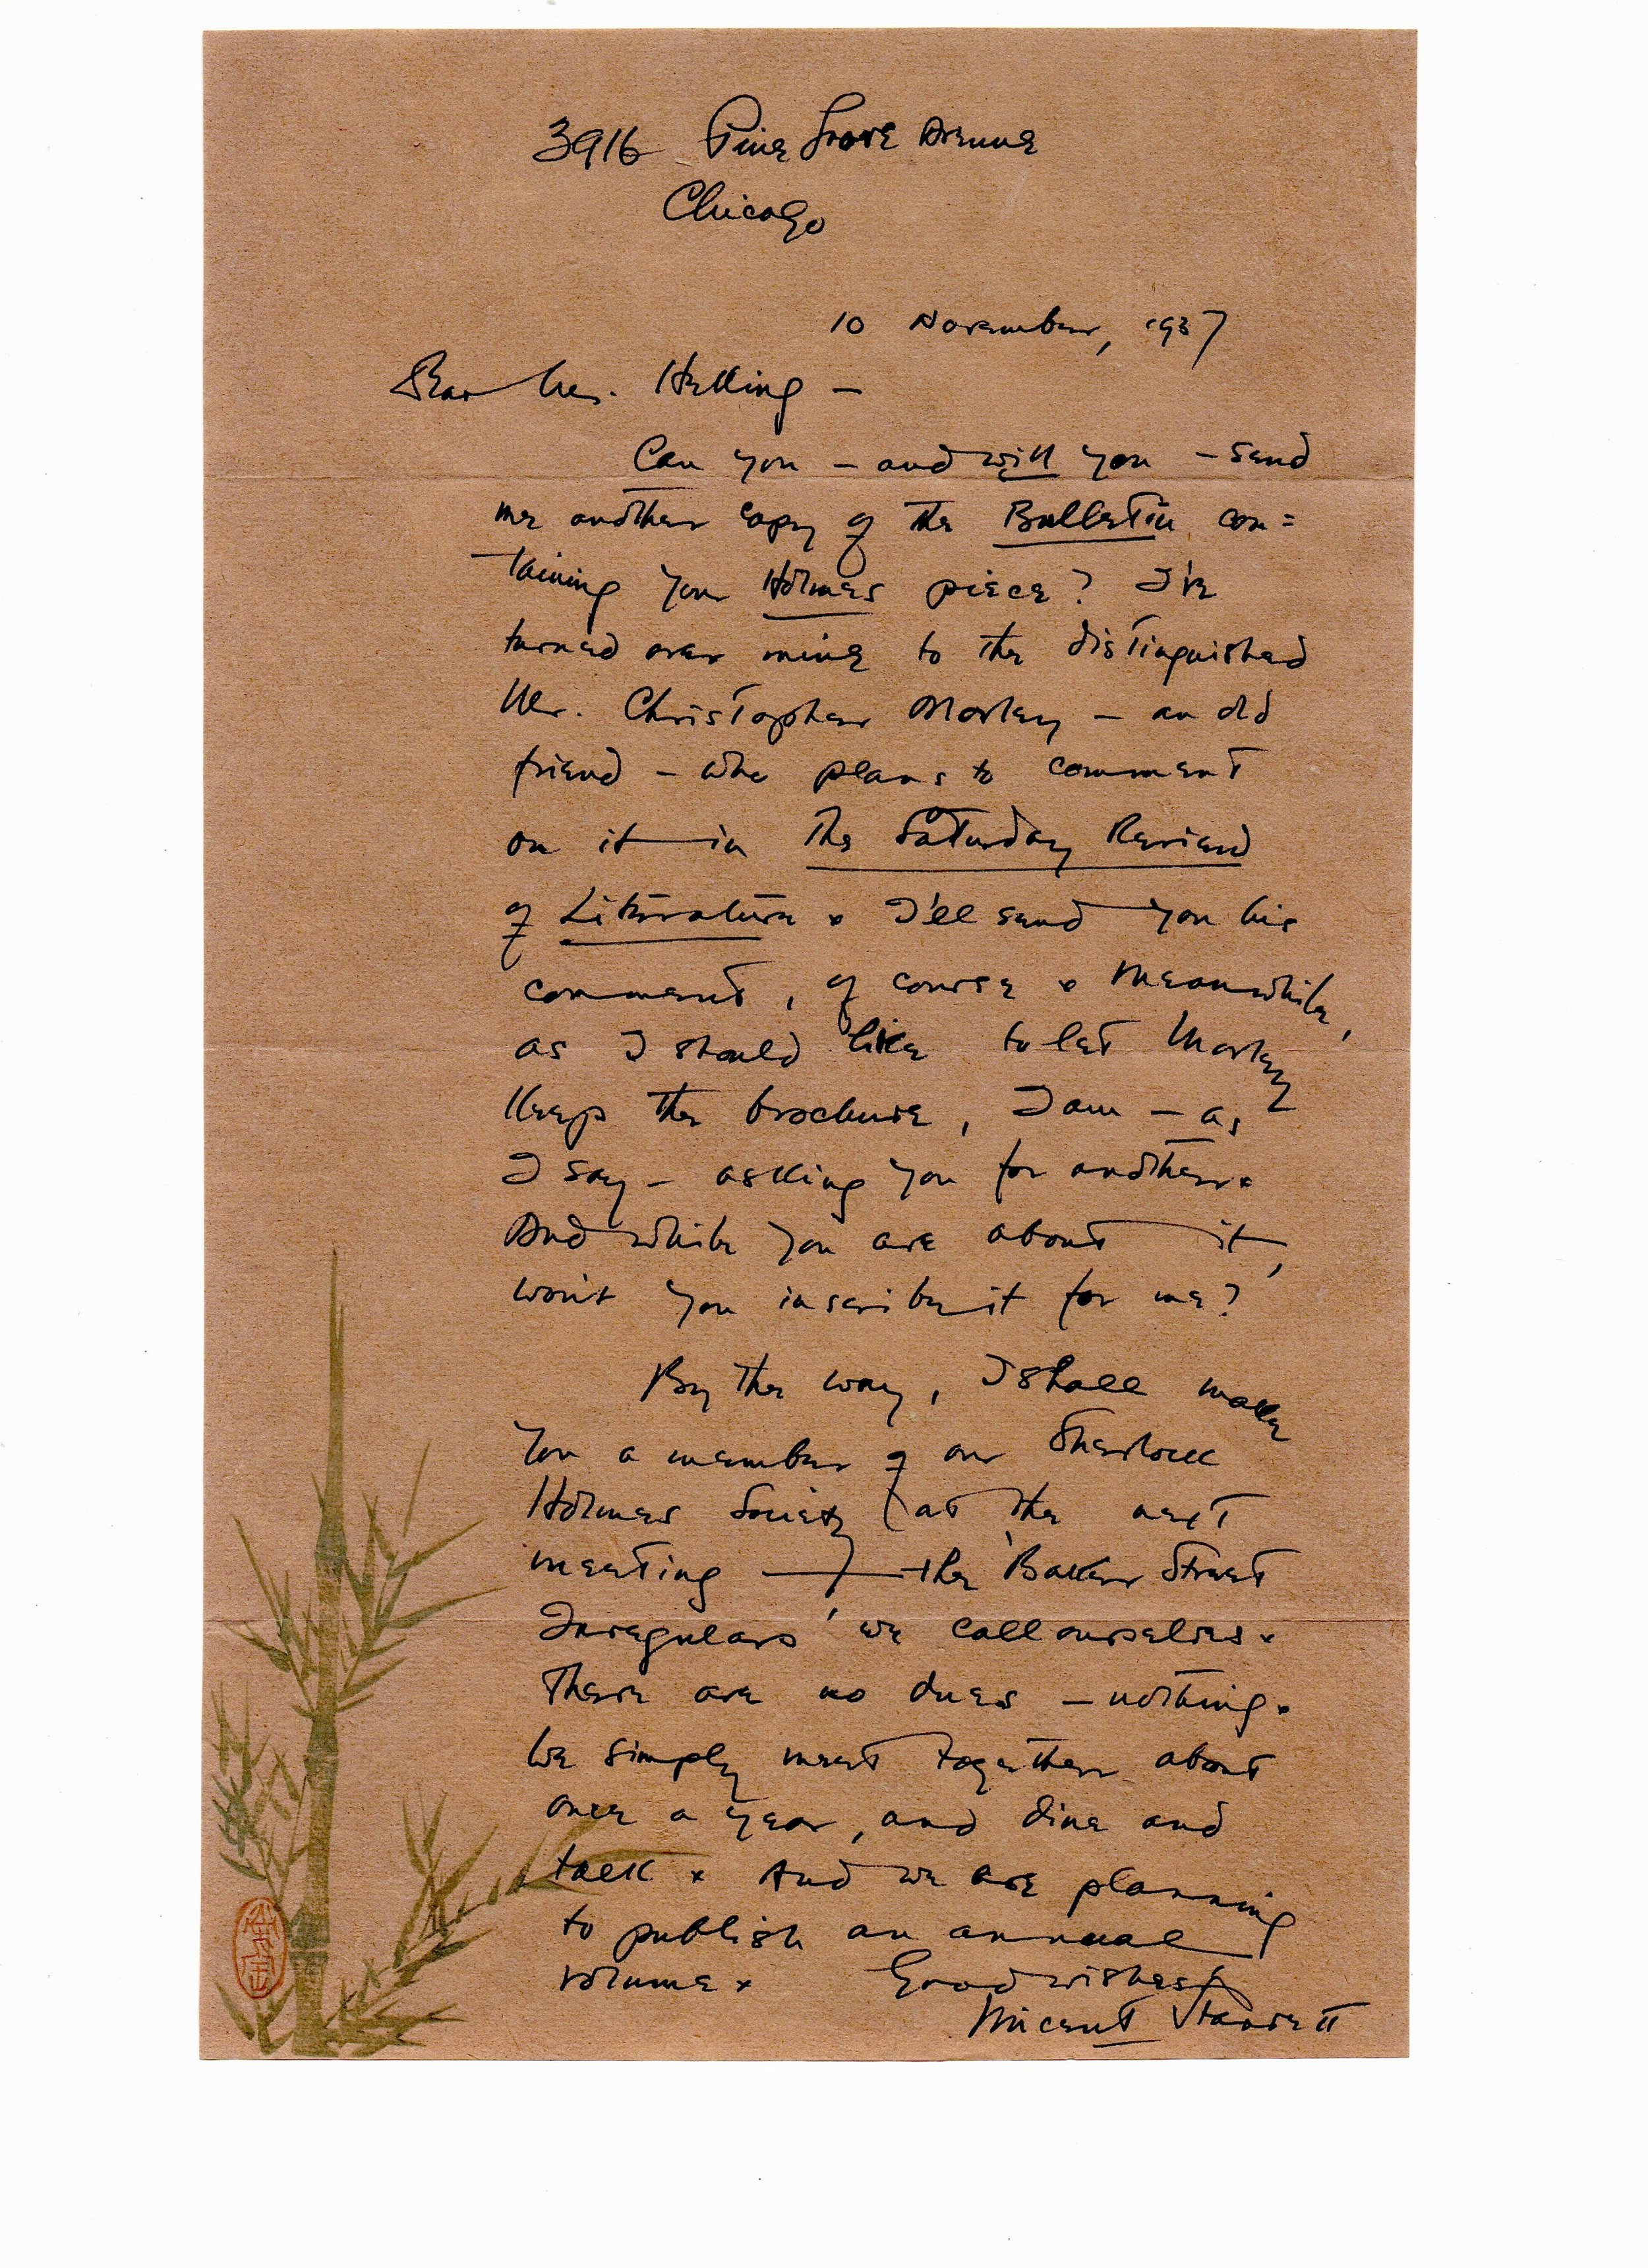 3916 Pine Grove Avenue
Chicago
10 November, 1937
Dear Mr. Helling –
Can you – and will you – send
me another copy of the Bulletin con=
taining your Holmes piece? I've
turned over mine to the distinguished
Mr. Christopher Morley – an old
friend – who plans to comment
on it in The Saturday Review
of Literature x I'll send you his
comment, of course x Meanwhile,
as I should like to let Morley
keep the brochure, I am – as
I say – asking you for another x
And while you are about it,
won't you inscribe it for me?
By the way, I shall make
you a member of our Sherlock
Holmes Society (at the next
meeting –) – the 'Baker Street
Irregulars' we call ourselves x
There are no dues – nothing x
We simply meet together about
once a year, and dine and
talk x And we are planning
to publish an annual
volume x Good wishes,
Vincent Starrett